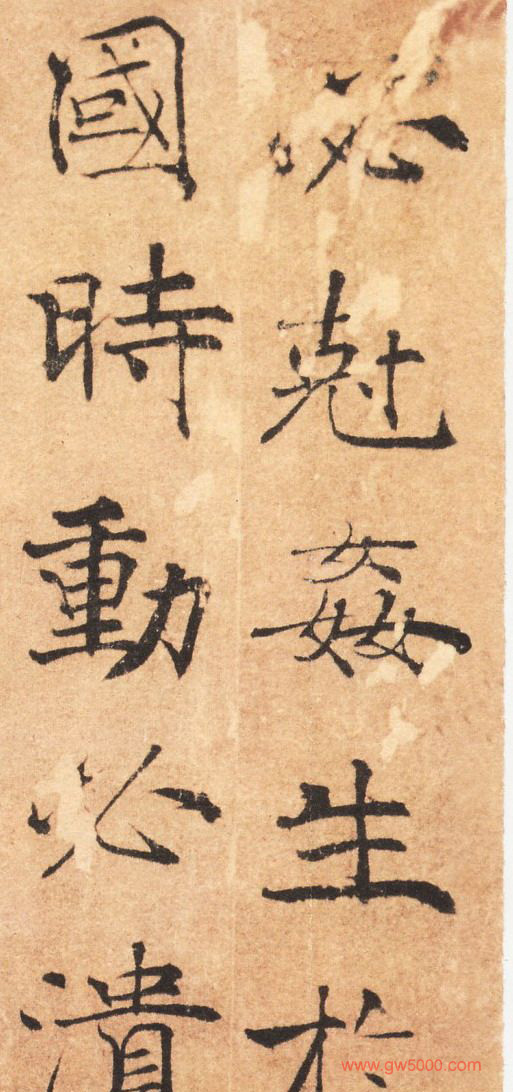 必尅姦生於
國時動必潰
www.gw5000.com